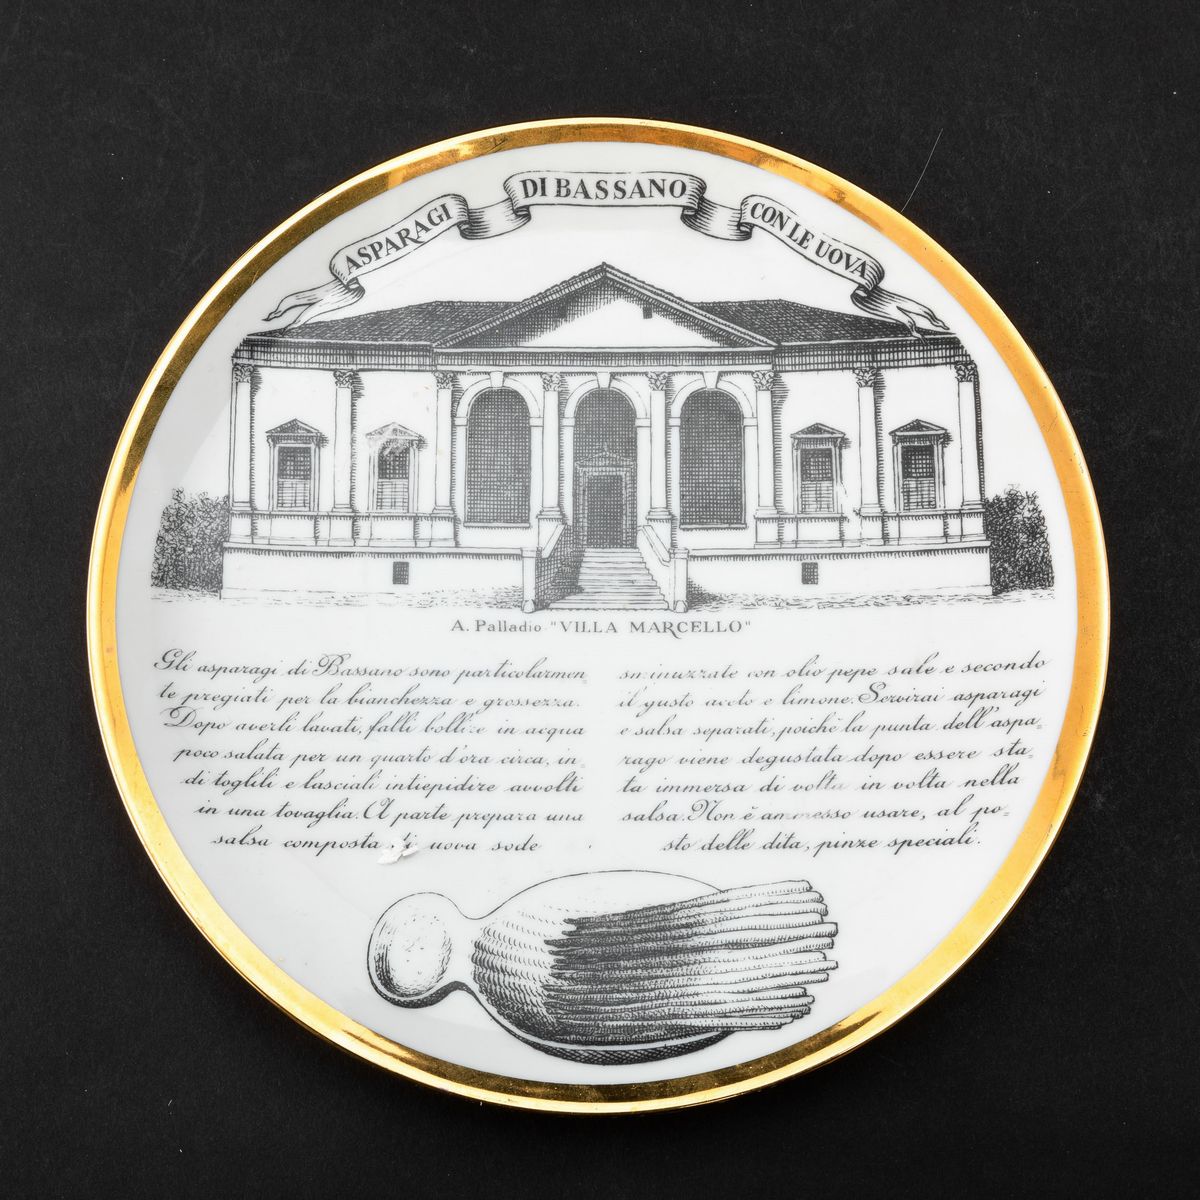 ASPARAGI DI BASSANO CON LE UOVA
A. Palladio "VILLA MARCELLO"
Gli asparagi di Bassano sono particolarmen-
te pregiati per la bianchezza e grossezza.
Dopo averli lavati, falli bollire in acqua
poco salata per un quarto d'ora circa, in-
di toglili e lasciali intiepidire avvolti
in una tovaglia. A parte prepara una
salsa composta di uova sode
sminuzzate con olio pepe sale e secondo
il gusto aceto e limone. Servirai asparagi
e salsa separati, poichè la punta dell'aspa-
rago viene degustata dopo essere sta-
ta immersa di volta in volta nella
salsa. Non è ammesso usare, al po-
sto delle dita, pinze speciali.